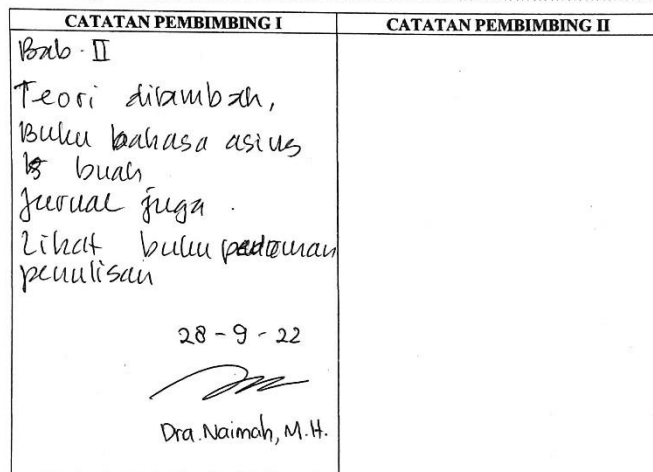 CATATAN PEMBIMBING I
CATATAN PEMBIMBING II
Bab - II
Teori ditambah,
Buku bahasa asing
buah
Jurnal juga .
Lihat buku pedoman
penulisan
28 - 9 - 22
Dra. Naimah, M.H.